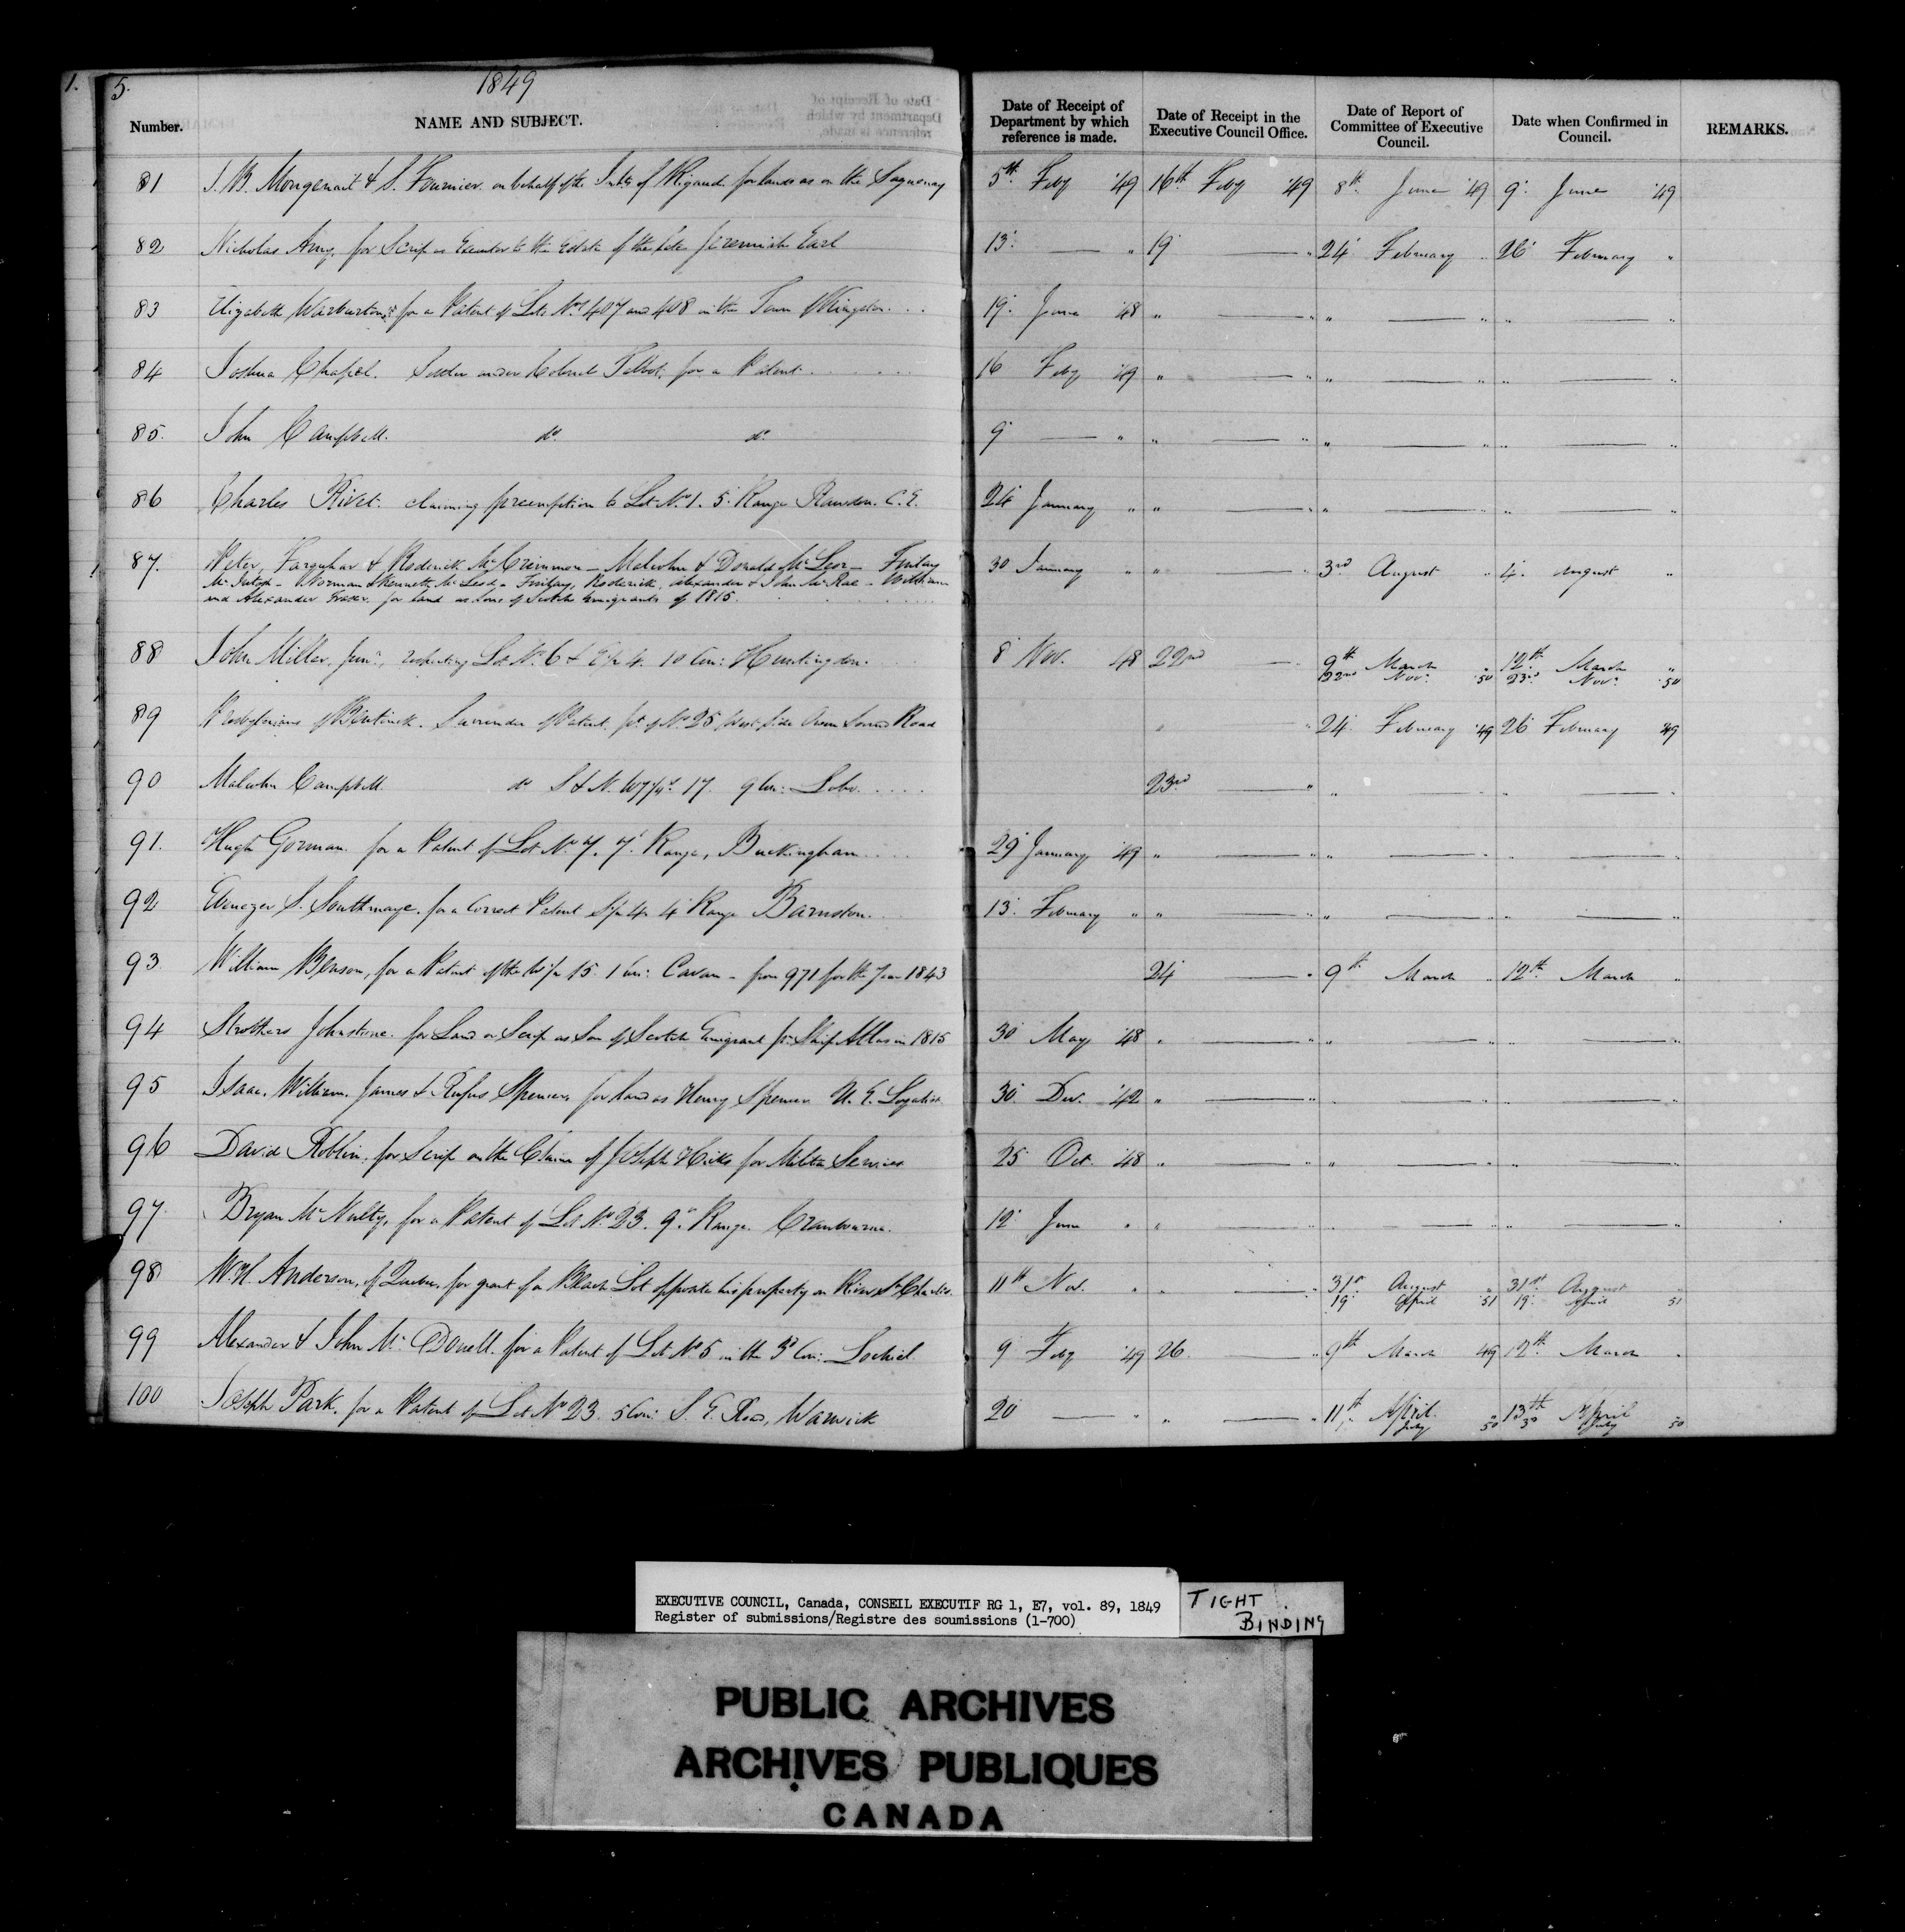 5.
1849
Number.
NAME AND SUBJECT.
Date of Receipt of Department by which reference is made.
Date of Receipt in the Executive Council Office.
Date of Report of Committee of Executive Council.
Date when Confirmed in Council.
REMARKS.
81 J. B. Mongenait & S. Fournier on behalf of the of Rigaud for lands on the Saguenay 5th Feby '49 16th Feby '49 8th June '49 9 June '49
82 Nicholas Amy, for Scrip as Executor to the Estate of the late Jeremiah Earl 13 — " 19 — " 24 February " 26 February "
83 Elizabeth Warburton for a Patent of Lots Nos 407 and 408 in the Town of Kingston... 19 June '48 " — " " — " " — "
84 Joshua Chapel. Settler under Colonel Talbot, for a Patent..... 16 Feby '49 " — " " — " " — "
85. John Campbell. do. do. 9 — " " — " " — " " — "
86 Charles Rivet. claiming preemption to Lot No. 1. 5 Range Rawdon. C. E. 24 January " " — " " — " " — "
87. Peter, Farquhar & Roderick McCrimmon — Malcolm & Donald McLeod — Finlay
McIntosh — Norman & Kenneth McLeod — Finlay, Roderick, Alexander & John McRae — William
and Alexander Fraser. for land as Sons of Scotch Emigrants of 1815. 30 January " " — " 3rd August " 4. August "
88 John Miller, Junr., respecting Lot No. 6 & 10 Con: Huntingdon. 8 Nov. 48 22nd — 9th March " 12th March "
22nd Novr. '50 23rd Novr. '50
89 Presbyterians of Bentinck. Surrender of Patent, pt. of No. 25 West Side Owen Sound Road " — " 24 February '49 26 February '49
90 Malcolm Campbell do S & N. W 1/4s 17. 9 Con: Lobo..... 23rd — " " — " " — "
91. Hugh Gorman. for a Patent of Lot No. 7. 7 Range, Buckingham.... 29 January '49 " — " " — " " — "
92 Ebenezer S. Southmayd. for a Correct Patent S 1/2 4 4 Range Barnston. 13. February " " — " " — " " — "
93 William Benson, for a Patent of the W 1/2 15. 1 Con: Cavan — from 971 for the Year 1843 24 — " 9th March " 12th March "
94 Strothers Johnstone. for Land or Scrip as Son of Scotch Emigrant pr. Ship Atlas in 1815 30 May '48 " — " " — " " — "
95 Isaac, William, James & Rufus Spencer for land as Henry Spencer U. E. Loyalist. 30. Dec. '42 " — " " — " " — "
96 David Roblin, for Scrip on the Claim of Joseph Hicks for Militia Services 25 Oct. '48 " — " " — " " — "
97 Bryan McNulty, for a Patent of Lot No 23. 9 Range. Cranbourne. 12 June " " — " " — " " — "
98 W. H. Anderson, of Quebec, for grant of a Beach Lot opposite his property on River St Charles. 11th Nov. " " — " 31st August " 31st August "
19 April 51 19. April 51
99 Alexander & John McDonell. for a Patent of Lot No 5 in the 3d Con: Lochiel. 9 Feby '49 26. — " 9th March 49 12th March "
100 Joseph Park. for a Patent of Lot No 23. 5 Con: S. E. Road, Warwick 20 — " " — " 11th April " 13th April "
July 50 July 50
EXECUTIVE COUNCIL, Canada, CONSEIL EXECUTIF RG 1, E7, vol. 89, 1849
Register of submissions/Registre des soumissions (1-700)
TIGHT
BINDING
PUBLIC ARCHIVES
ARCHIVES PUBLIQUES
CANADA